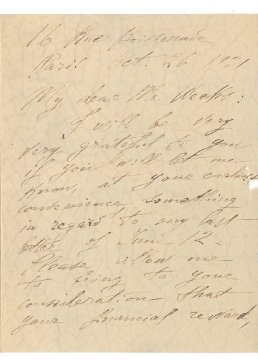 16 Rue Boissonade
Paris Oct. 26 1921
My dear Mr
I will be very
very grateful to you
if you will let me
know, at your earliest
convenience, something
in regard to my last
of June 12 -
Please allow me
to bring to your
consideration that
your financial reward,